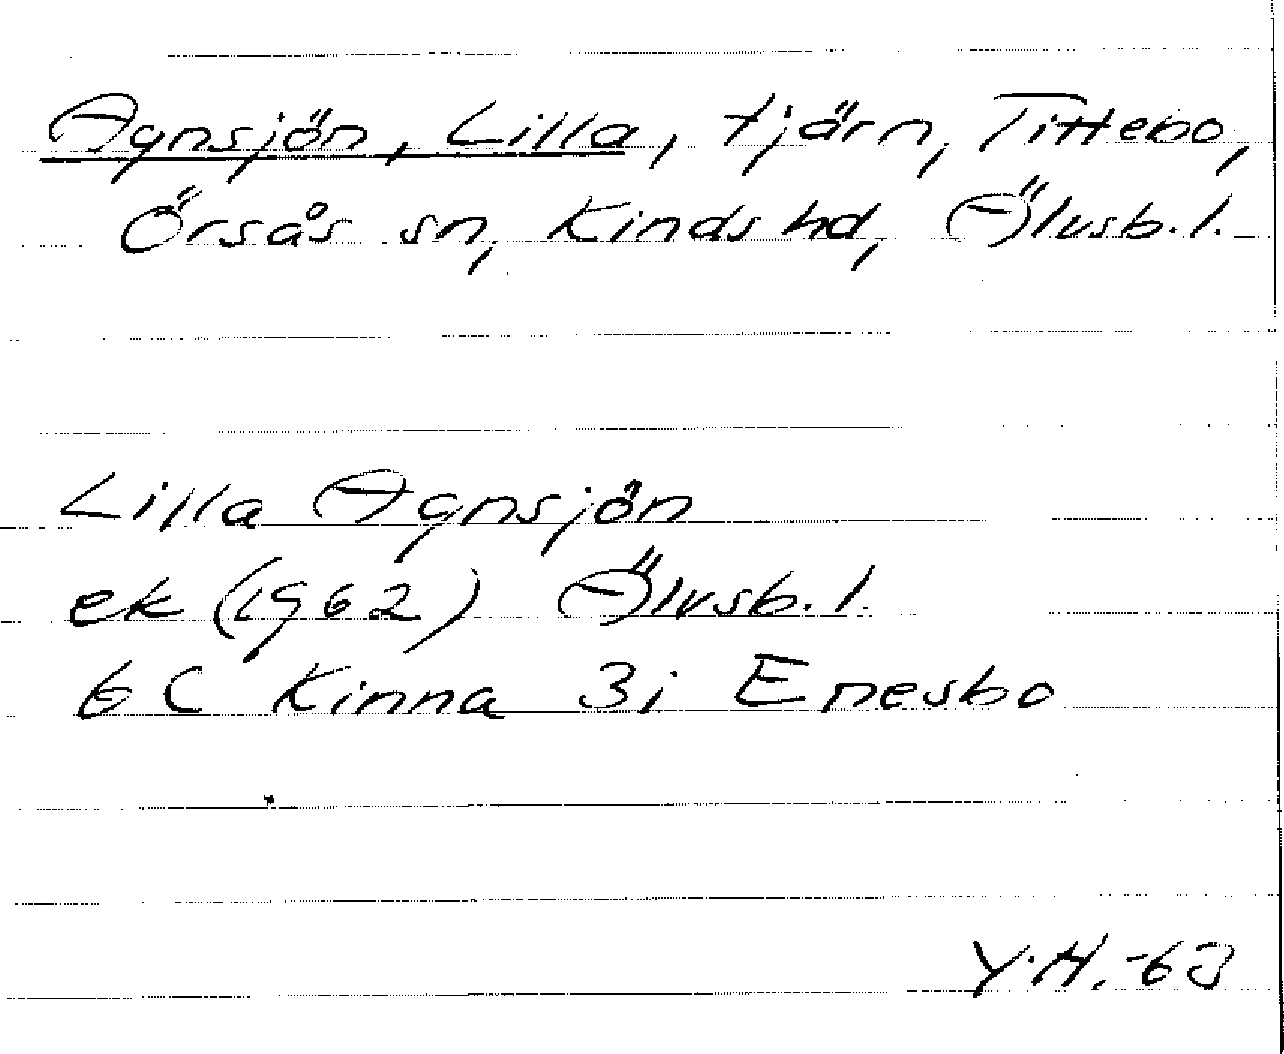 Agnsjön, Lilla, tjärn, Tittebo,
Örsås sn, Kinds hd, Älvsb. l.
Lilla Agnsjön
ek (1962) Älvsb. l.
6 C Kinna 3i Enesbo
Y.H. -63